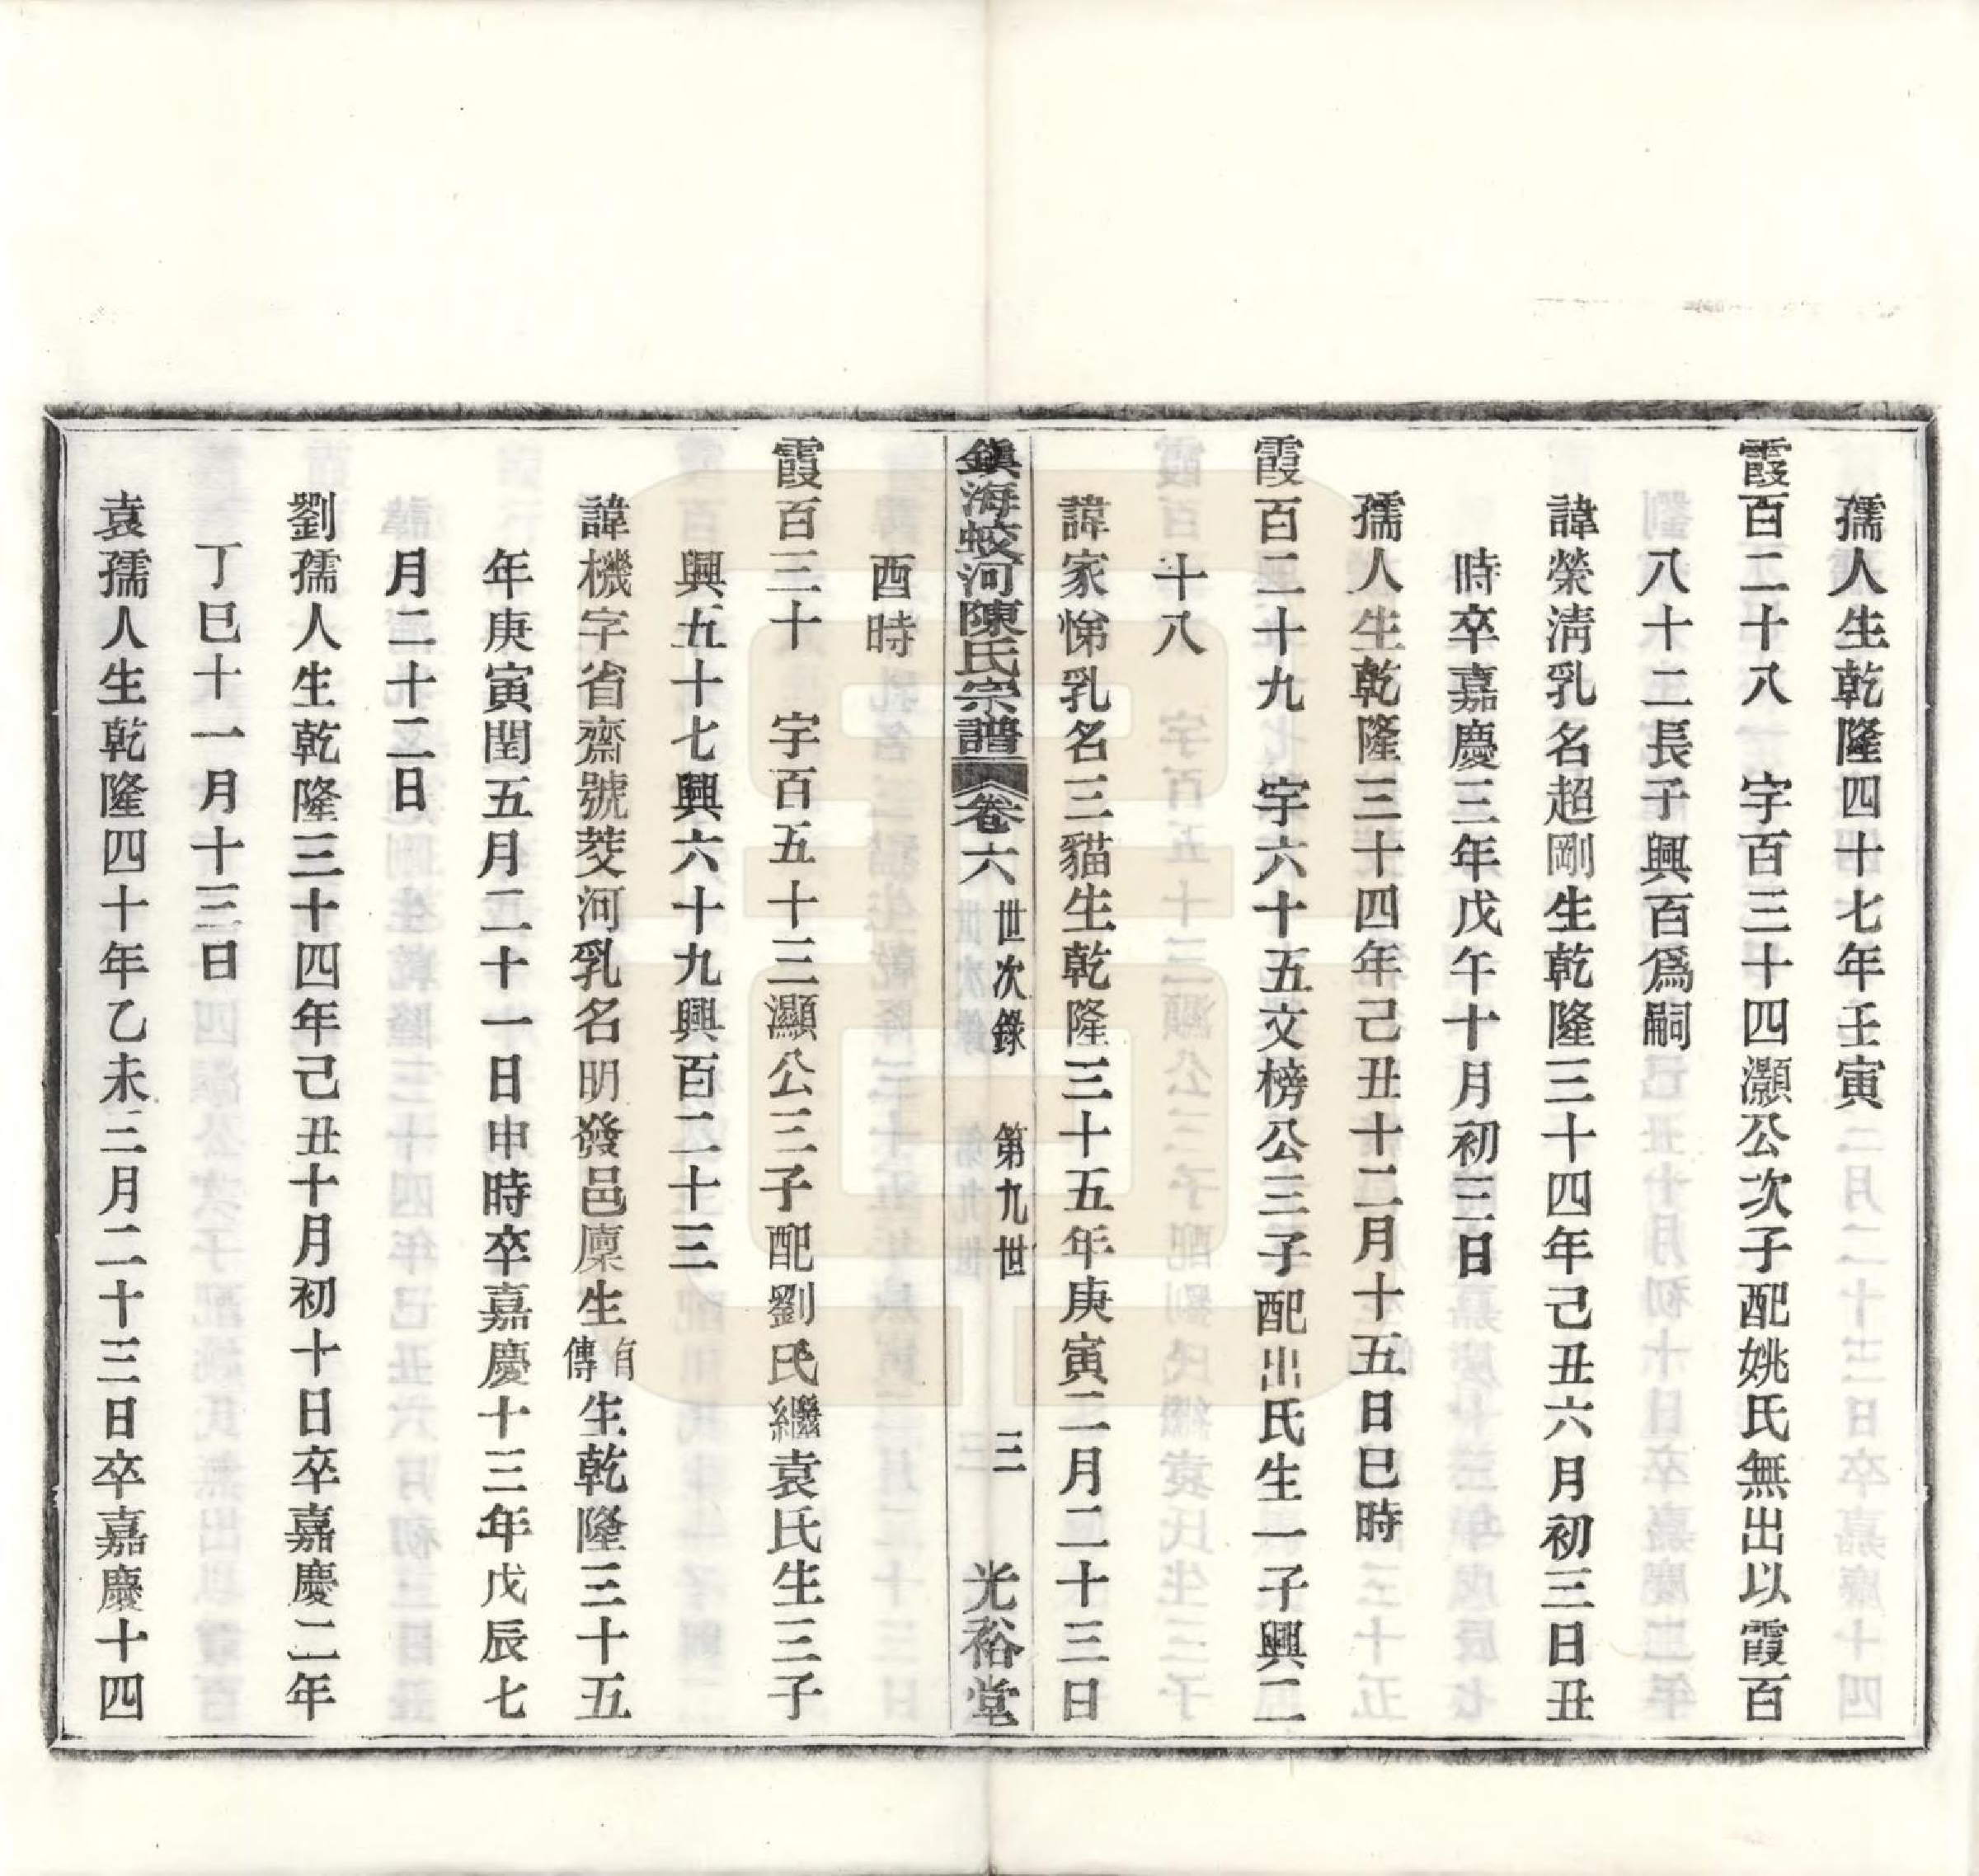 孺人生乾隆四十七年壬寅
霞百二十八 字百三十四灝公次子配姚氏無出以霞百
八十二長子興百爲嗣
諱榮淸乳名超剛生乾隆三十四年己丑六月初三日丑
時卒嘉慶三年戊午十月初三日
孺人生乾隆三十四年己丑十二月十五日巳時
霞百二十九 字六十五文榜公三子配出氏生一子興二
十八
諱家悌乳名三貓生乾隆三十五年庚寅二月二十三日
鎭海蛟河陳氏宗譜 卷六 世次錄 第九世 三 光裕堂
酉時
霞百三十 字百五十三灝公三子配劉氏繼袁氏生三子
興五十七興六十九興百二十三
諱機字省齋號茭河乳名明發邑廩生有傳生乾隆三十五
年庚寅閏五月二十一日申時卒嘉慶十三年戊辰七
月二十二日
劉孺人生乾隆三十四年己丑十月初十日卒嘉慶二年
丁巳十一月十三日
袁孺人生乾隆四十年乙未三月二十三日卒嘉慶十四